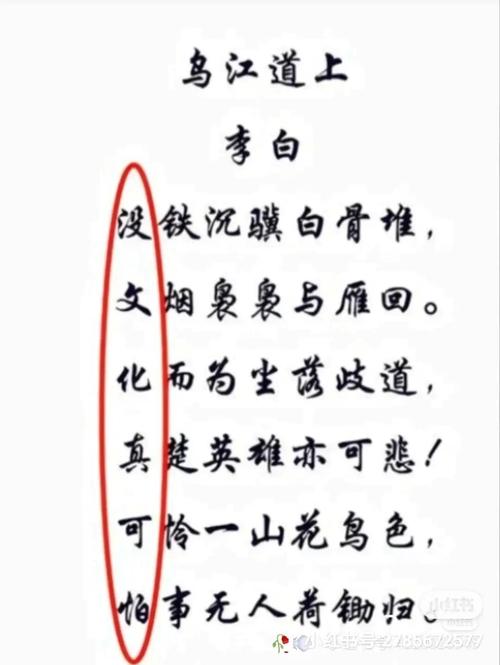 乌江道上
李白
没铁沉骥白骨堆，
文烟袅袅与雁回。
化而为尘落歧道，
真楚英雄亦可悲！
可怜一山花鸟色，
怕事无人荷锄归。
小红书
小红书号：785672577